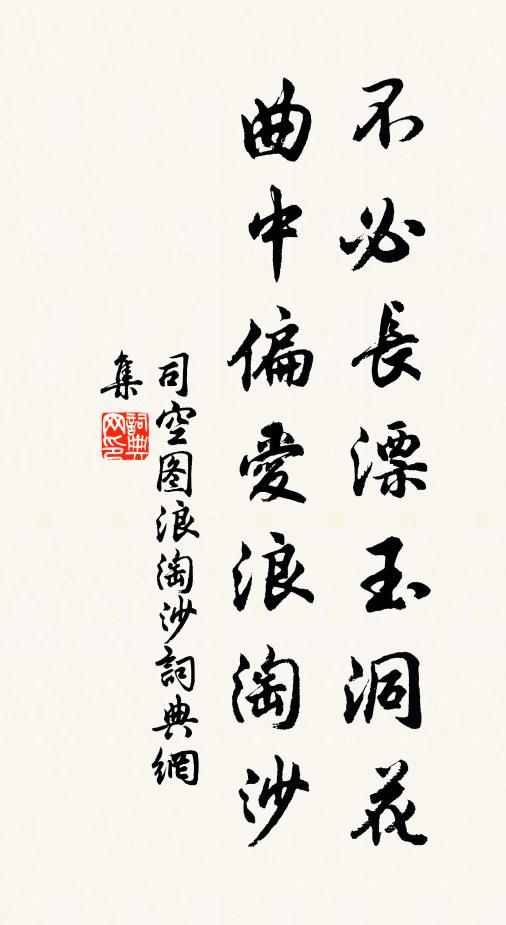 不必長漂玉洞花
曲中偏愛浪淘沙
司空图浪淘沙詞典網
集
詞典网印